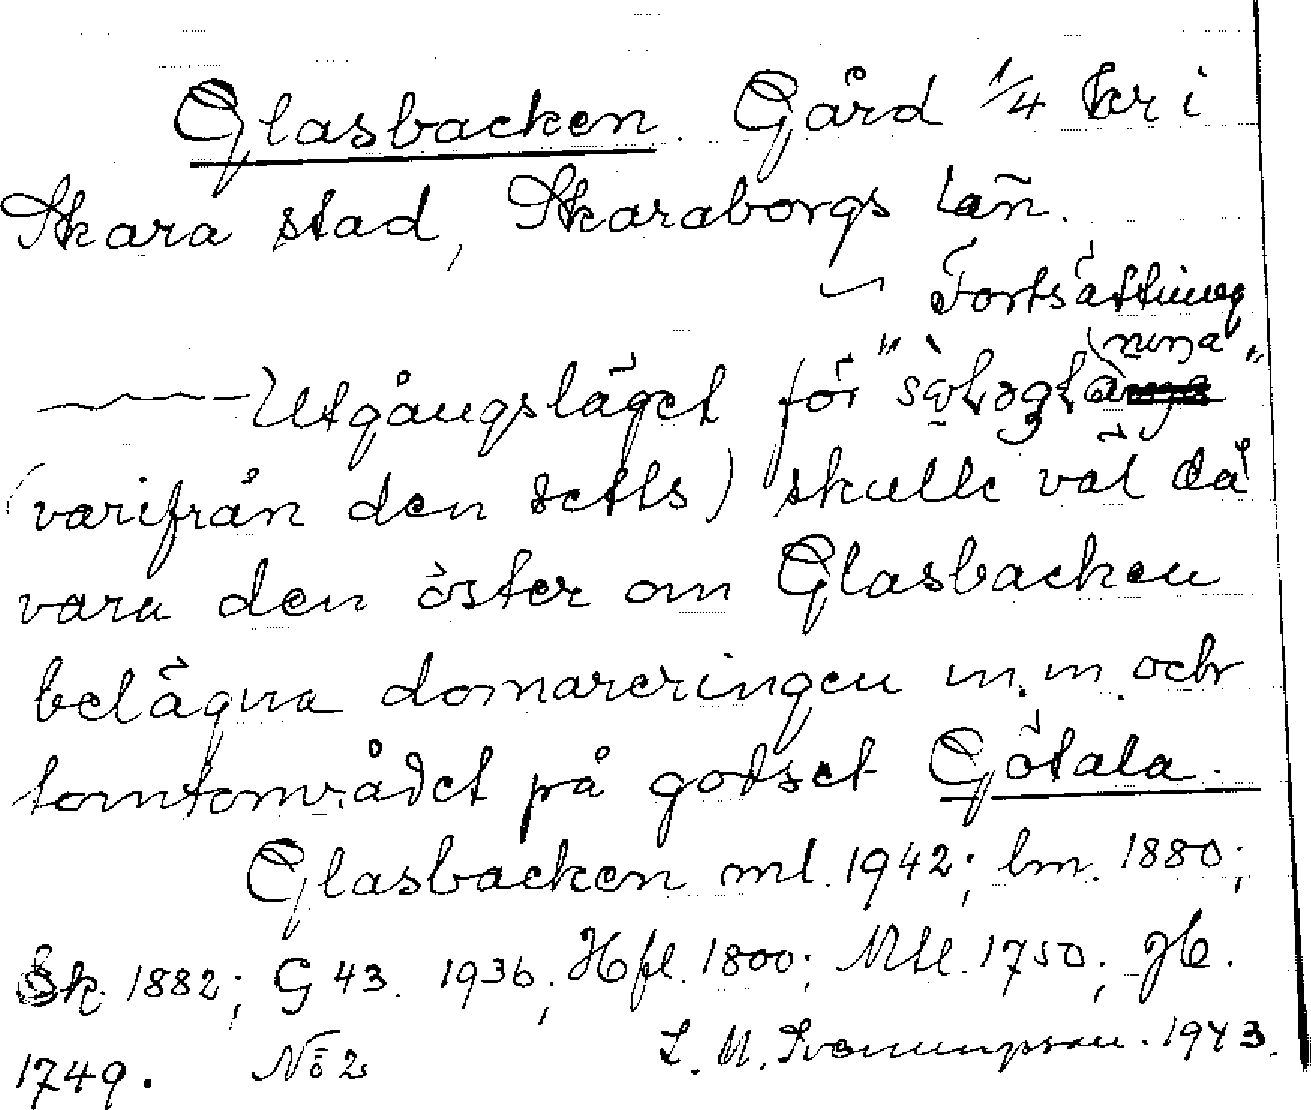 Glasbacken. Gård 1/4 kr i
Skara stad, Skaraborgs län.
Fortsättning
Utgångsläget för
(varifrån den setts) skulle väl då
vara den öster om Glasbacken
belägna domareringen m.m. och
tomtområdet på godset Götala.
Glasbacken ml. 1942; lm. 1880;
Sk. 1882; G 43. 1936; Hfl. 1800; Mtl. 1750; jb.
1749. No 2 L. M. Svenungsson. 1943.